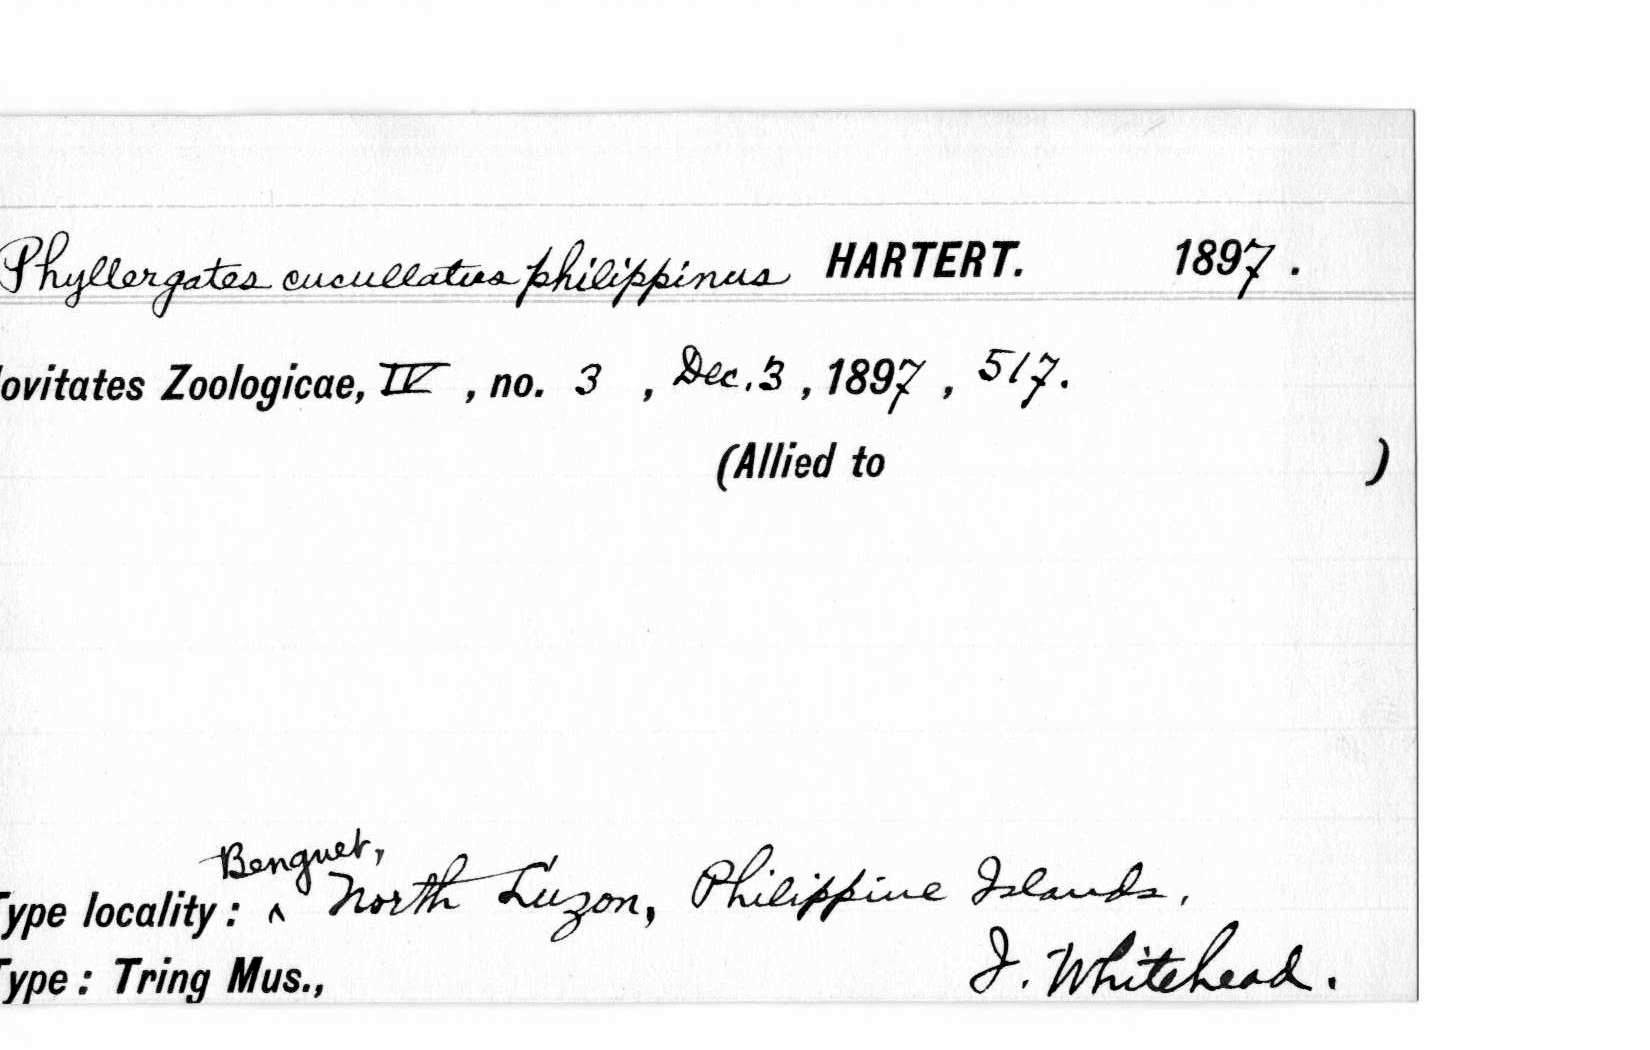 Phyllergates cucullatus philippinus HARTERT. 1897.
ovitates Zoologicae, IV, no. 3, Dec. 3, 1897, 517.
(Allied to )
Benguet,
Type locality: ^ North Luzon, Philippine Islands.
Type: Tring Mus., J. Whitehead.